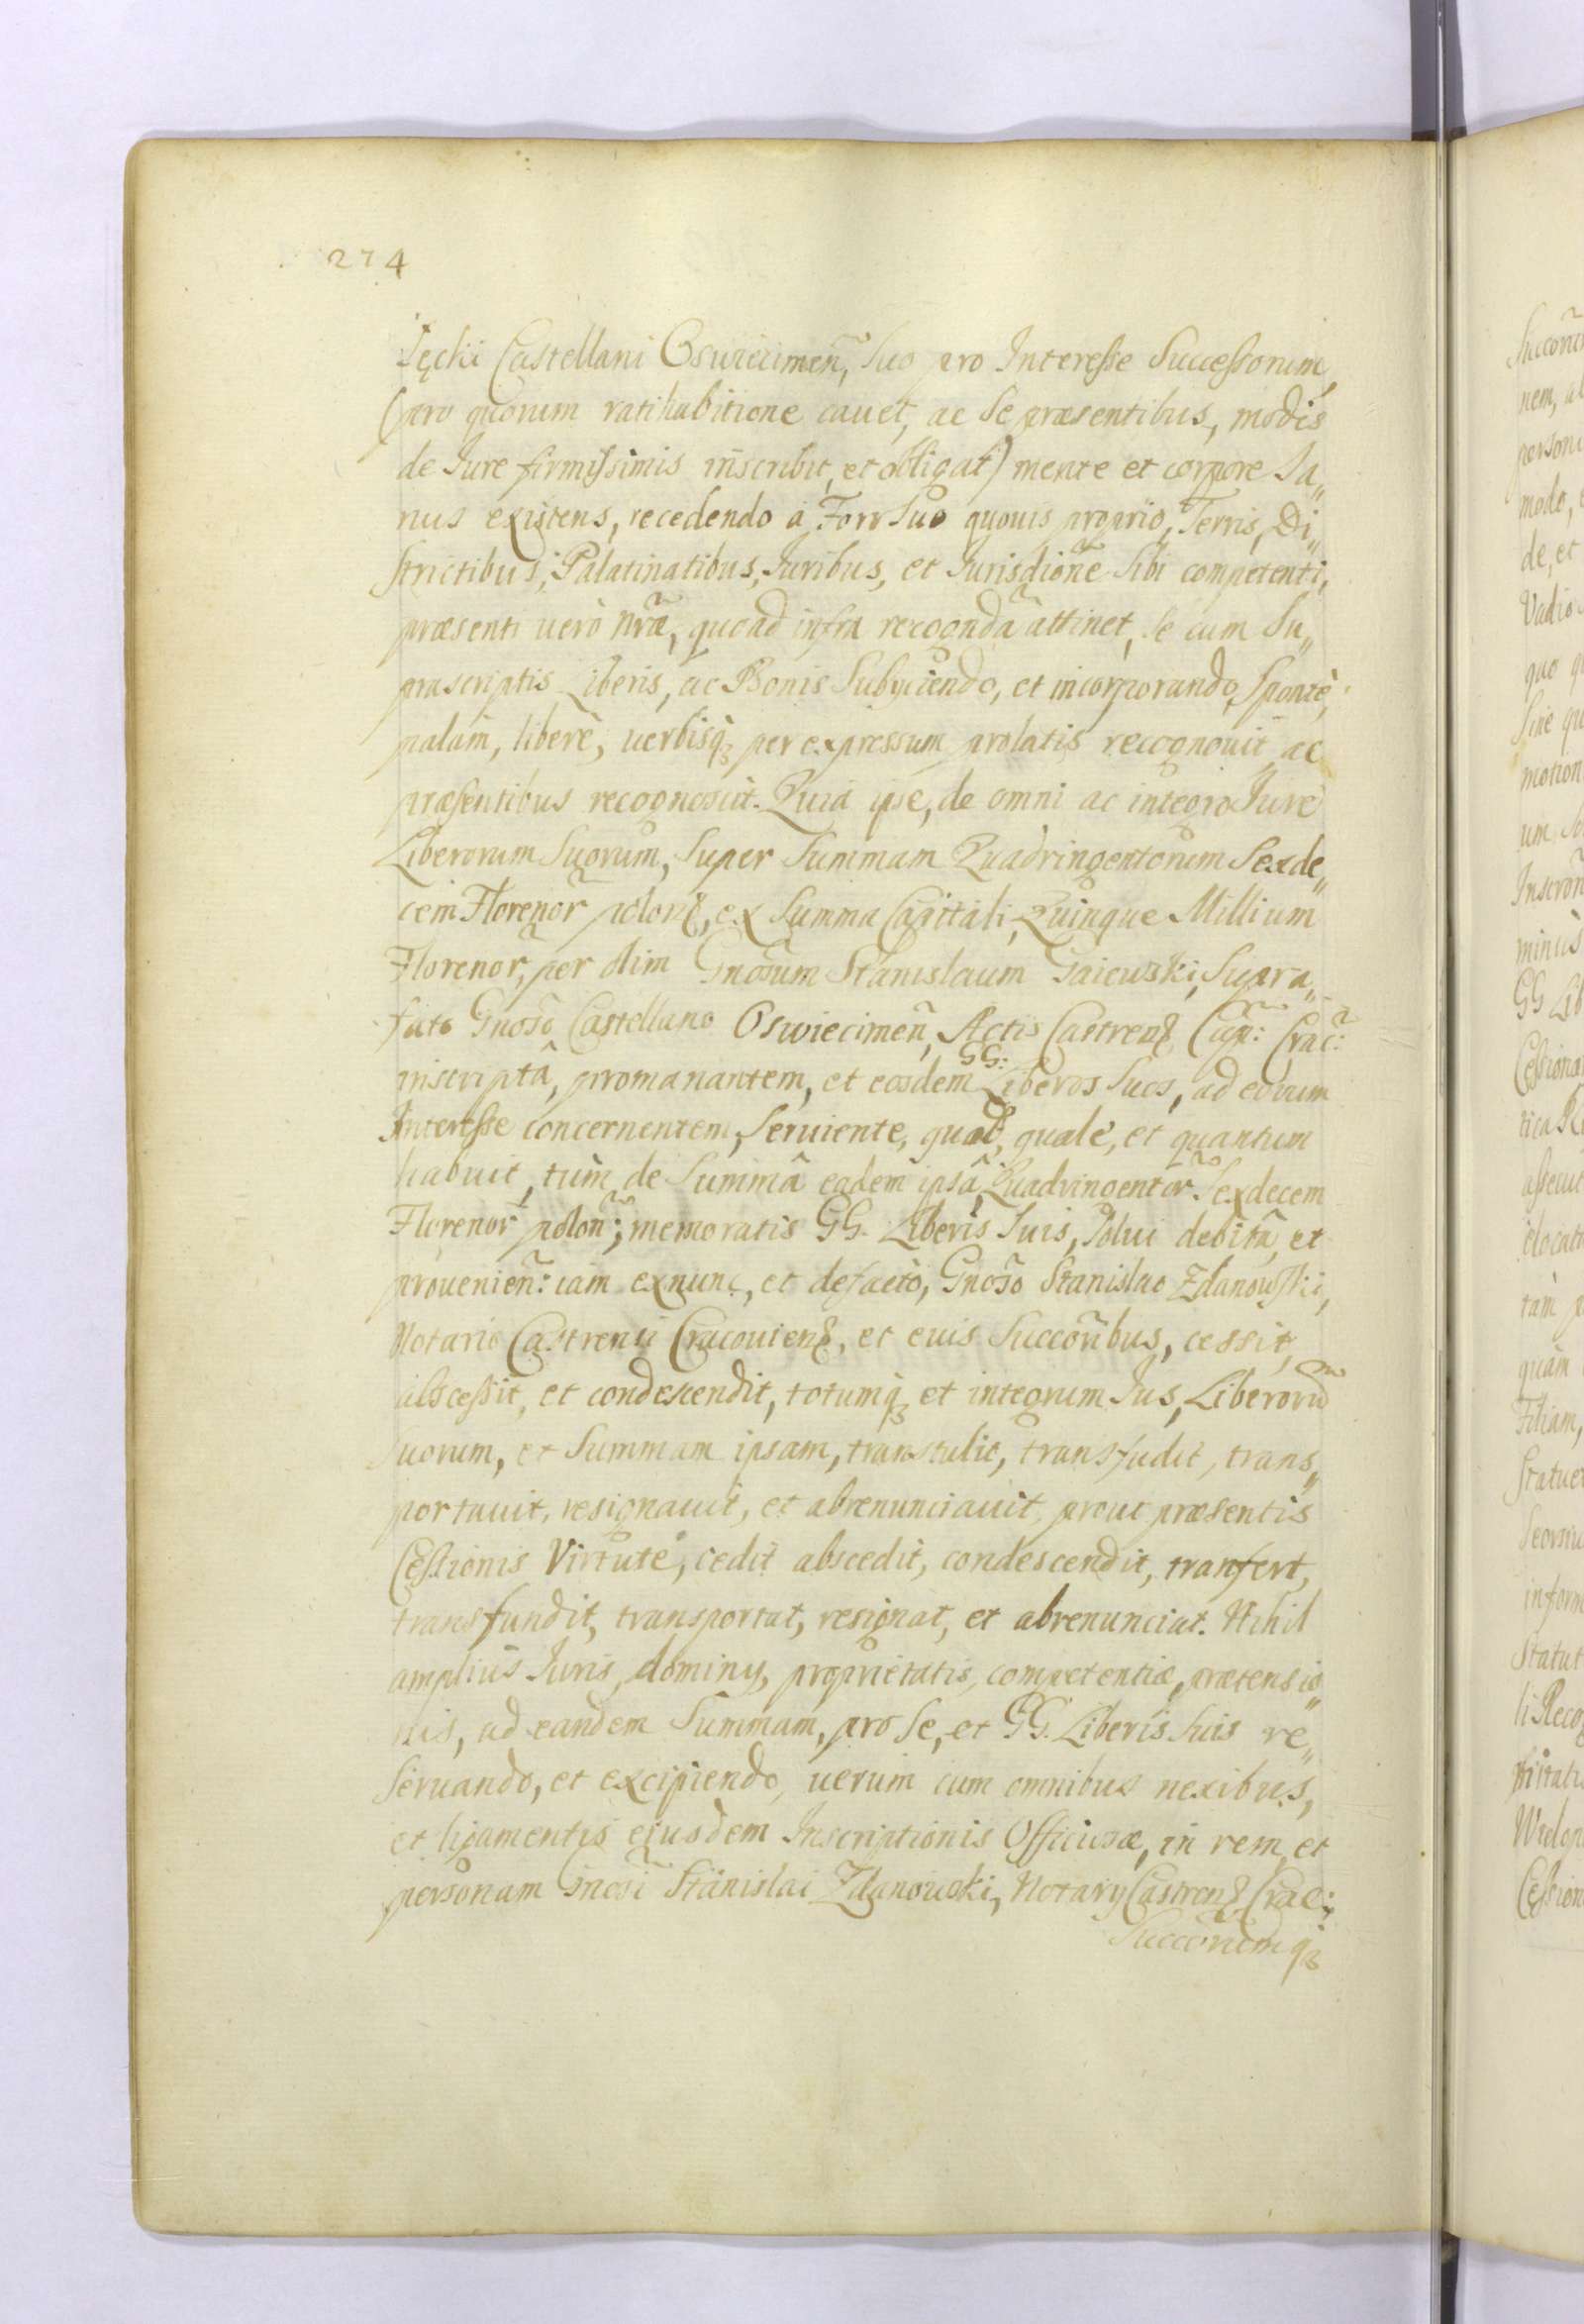 274
Castellani Oswiecimen̄, Suo pro Interesse Successorum,
(pro quorum ratihabitione cauet, ac Se præsentibus, modis
de Jure firmissimis inscribit, et obligat) mente et corpore Sa„
nus existens, recedendo à Foro Suo quouis proprio, Terris, Di„
strictibus, Palatinatibus, Juribus, et Jurisdiōne Sibi competenti,
præsenti uerò nr̄æ, quoad infra recogndā attinet, Se cum Su„
prascriptis Liberis, ac Bonis Subÿciendo, et incorporando, Spontè,
palàm, liberè, uerbisq̢ per expressum prolatis recognouit ac
præsentibus recognoscit. Quia ipse, de omni ac integro Jure
Liberorum Suorum, Super Summam Quadringentorum Sexde„
cem Florenor̄ polon̄, ex Summa Capitali, Quinque Millium
Florenor̄, per olim Gnosum Stanislaum Gaiewski, Supra„
fato Gnosō Castellano Oswiecimen̄, Actis Castren̄ Cap̄: Crac̄:
inscriptâ, promanantem, et eosdem GG: Liberos Suos, ad eorum
Interesse concernentem, Seruiente, quod, quale, et quantum
habuit, tùm de Summâ eâdem ipsâ, Quadringentor̄ Sexdecem
Florenor̄ polon̄; memoratis GG. Liberis Suis, Solui debitâ, et
prouenien̄: iam exnunc, et defacto, Gnosō Stanislao Zdanowski,
Notario Castrensi Cracouien̄, et eius Succōribus, cessit,
abscessit, et condescendit, totumq̢ et integrum Jus, Liberorū
Suorum, et Summam ipsam, transtulit, transfudit, trans„
portauit, resignauit, et abrenunciauit, prout præsentis
Cessionis Virtute, cedit abscedit, condescendit, tranfert,
transfundit, transportat, resignat, et abrenunciat. Nihil
ampliùs Juris, dominÿ, proprietatis, competentiæ, prætensio„
nis, ad eandem Summam, pro Se, et GG. Liberis Suis re„
Seruando, et excipiendo, uerùm cum omnibus nexibus,
et ligamentis eiusdem Inscriptionis Officiosæ, in rem, et
personam Gnosī Stanislai Zdanowski, Notarÿ Castren̄ Crac:
Succōrumq̢